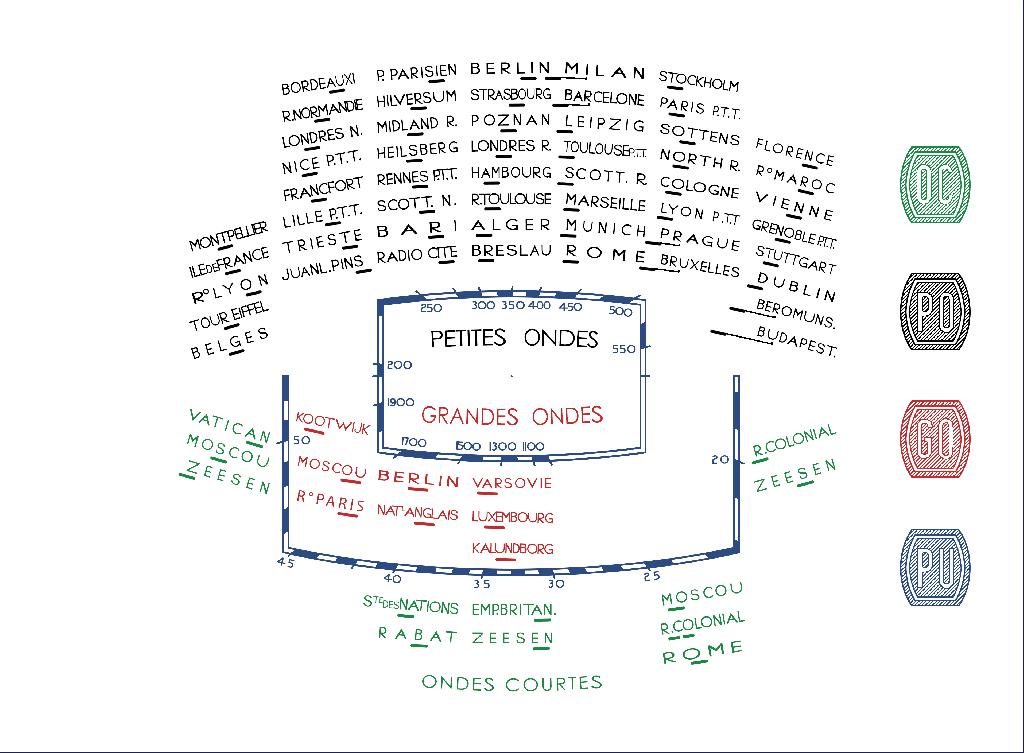 BORDEAUX I
R.NORMANDIE
LONDRES N.
NICE P.T.T.
FRANCFORT
LILLE P.T.T.
TRIESTE
JUAN L.PINS
MONTPELLIER
ILE DE FRANCE
R° LYON
TOUR EIFFEL
BELGES
P. PARISIEN
HILVERSUM
MIDLAND R.
HEILSBERG
RENNES P.T.T.
SCOTT. N.
BARI
RADIO CITE
BERLIN
STRASBOURG
POZNAN
LONDRES R.
HAMBOURG
R.TOULOUSE
ALGER
BRESLAU
MILAN
BARCELONE
LEIPZIG
TOULOUSE P.T.T.
SCOTT. R
MARSEILLE
MUNICH
ROME
STOCKHOLM
PARIS P.T.T.
SOTTENS
NORTH R.
COLOGNE
LYON P.T.T
PRAGUE
BRUXELLES
FLORENCE
R° MAROC
VIENNE
GRENOBLE P.T.T.
STUTTGART
DUBLIN
BEROMUNS.
BUDAPEST.
250 300 350 400 450 500
550
PETITES ONDES
200
1900
GRANDES ONDES
1700 1500 1300 1100
VATICAN
MOSCOU
ZEESEN
KOOTWIJK
50
MOSCOU
R° PARIS
BERLIN
NAT! ANGLAIS
VARSOVIE
LUXEMBOURG
KALUNDBORG
20
R.COLONIAL
ZEESEN
45 40 35 30 25
STE DES NATIONS
RABAT
EMP.BRITAN.
ZEESEN
MOSCOU
R.COLONIAL
ROME
ONDES COURTES
OC
PO
GO
PU